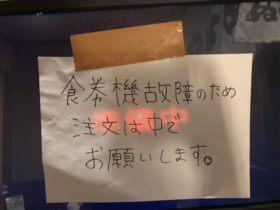 食券機故障のため
注文は中で
お願いします。